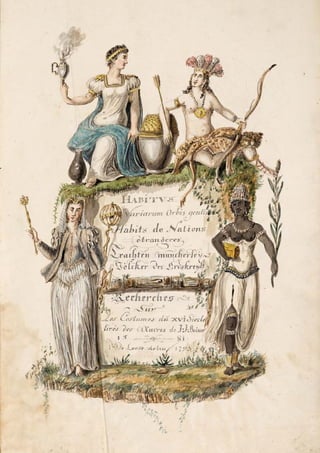 HABITVS
Variarum Orbis genti
Habits de Nations
étrangeres
Trachten mancherley
Völcker des Erdskreyß
Recherches
Sur
Les Costumes du XVI Siecle
tirés des Œuvres de J. J.
15 81